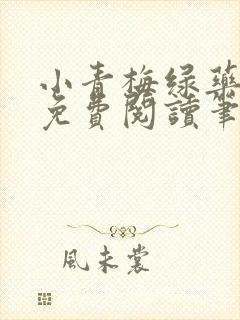 小青梅绿药
免費閱讀筆
風未裳